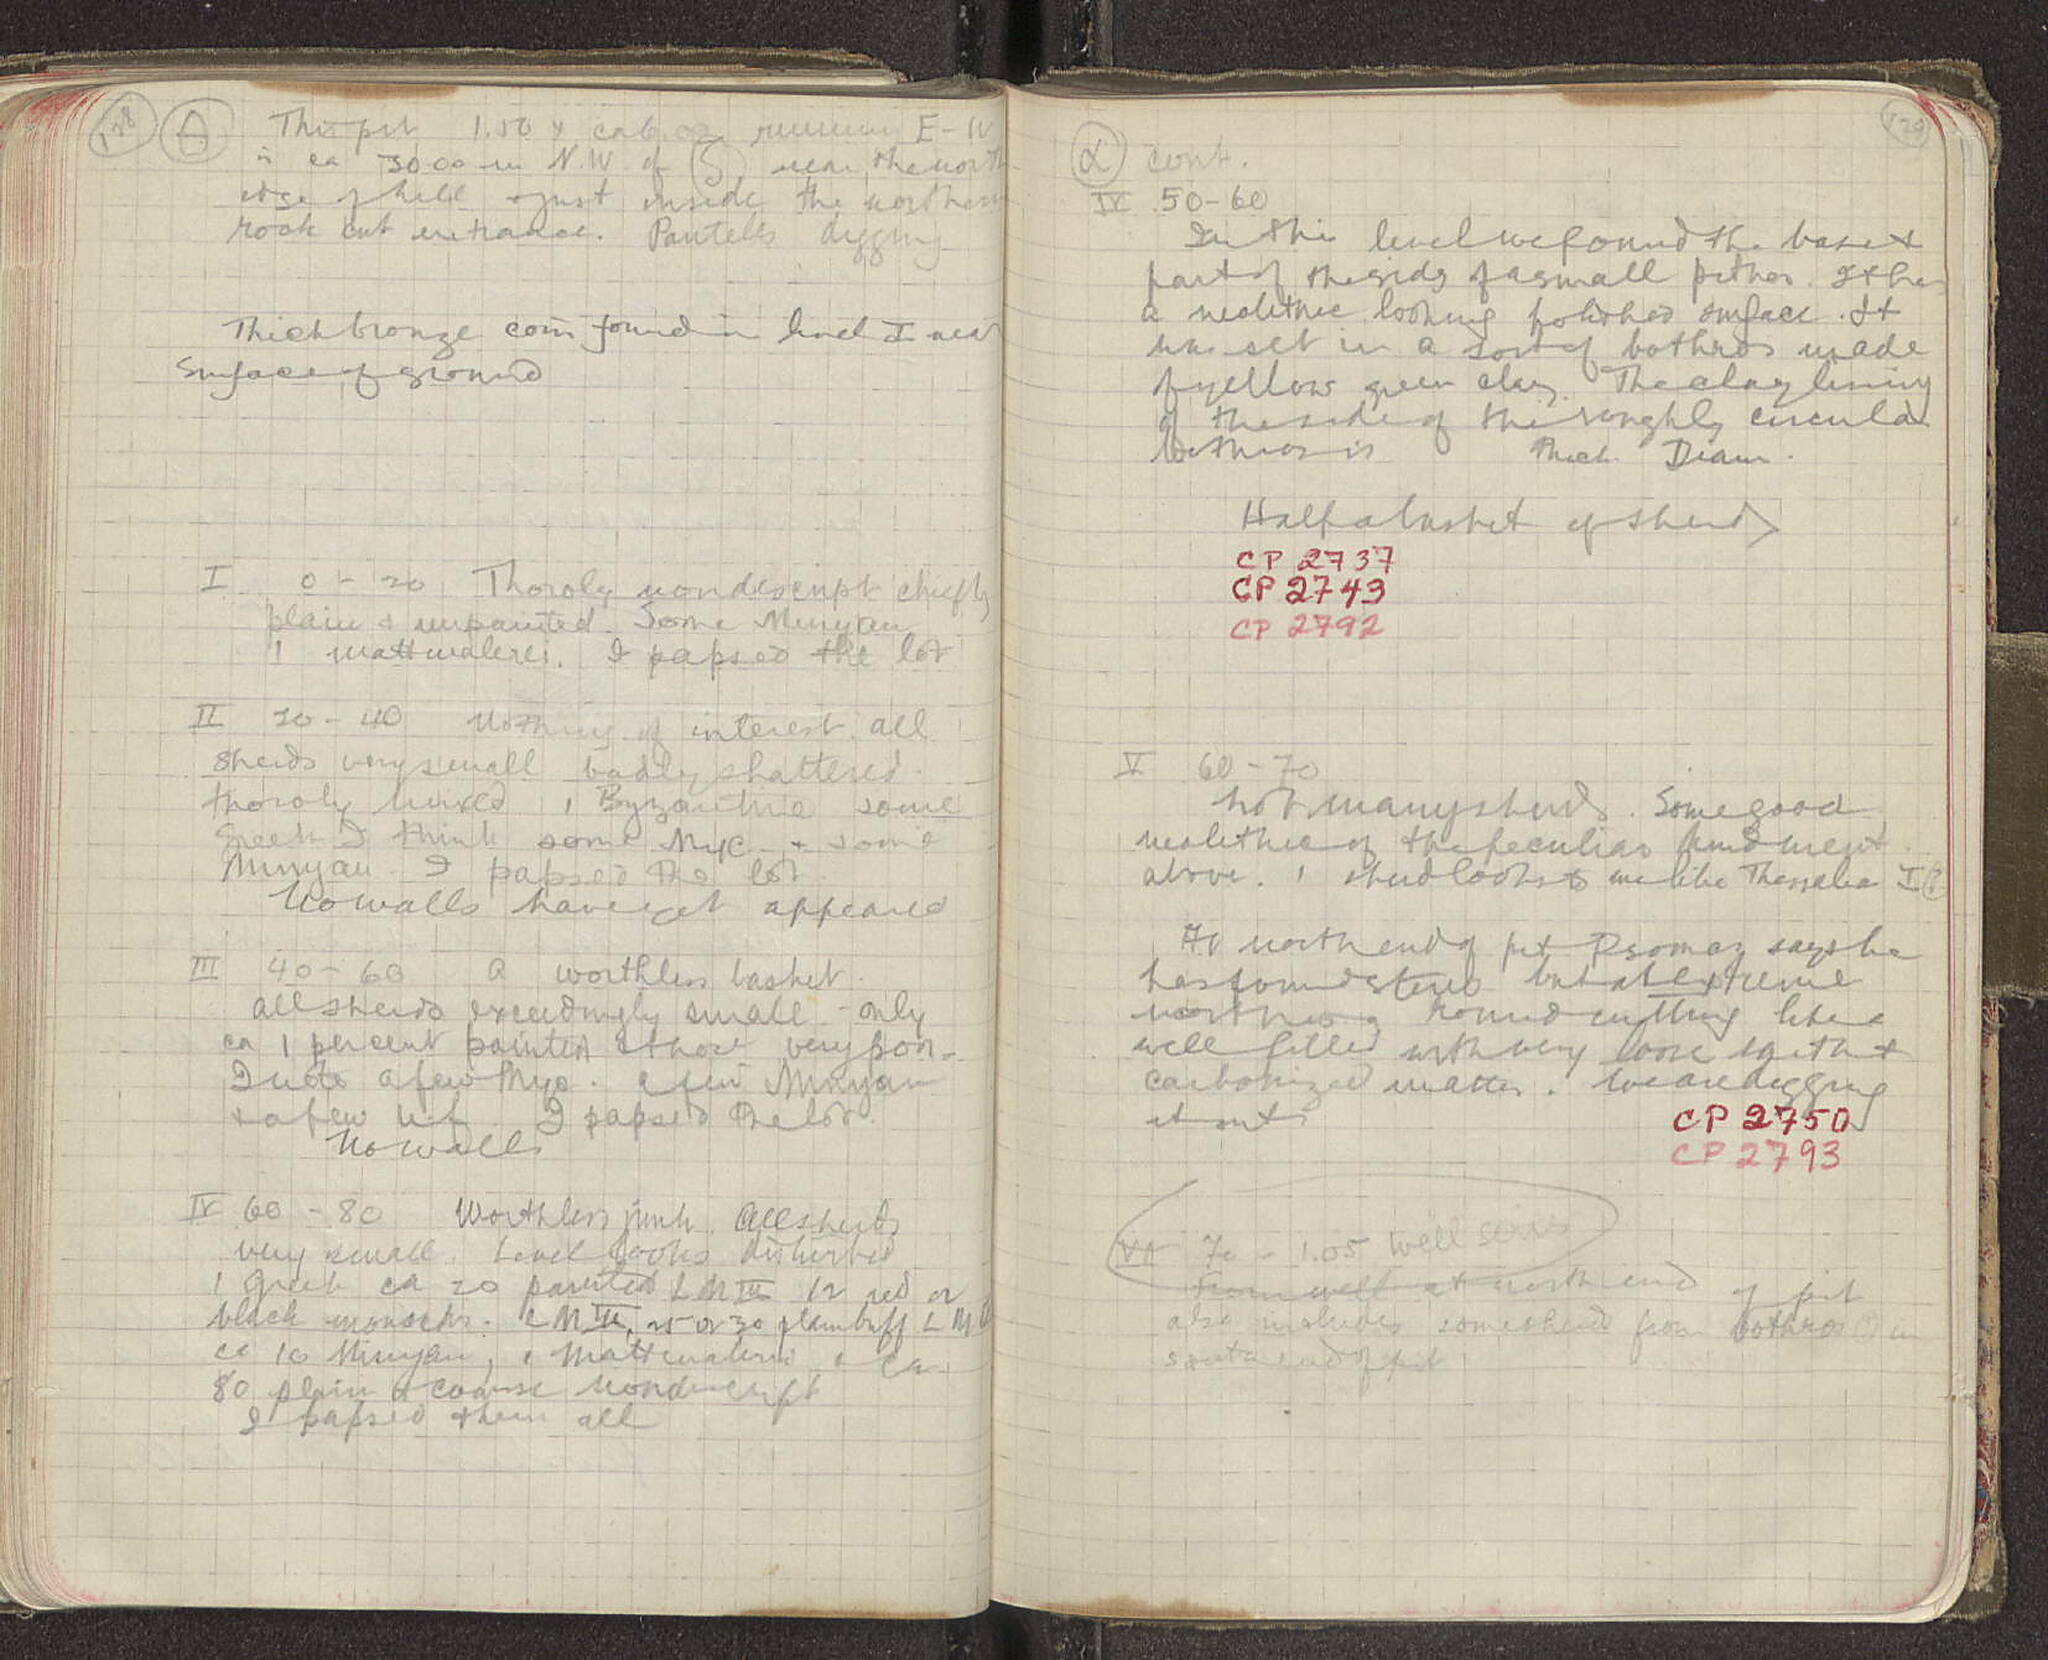 128 θ This pit 1.50 x ca 6.00 running E-W
is ca 30.00 m N.W. of ζ near the north
edge of hill & just inside the northern
rock cut entrance. Pantelis digging
Thick bronze coin found in level I near
surface of ground
I 0-20 Thoroly nondescript chiefly
plain & unpainted. Some Minyan
1 mattmalerei. I papsed the lot
II 20-40 Nothing of interest. all
sherds very small badly shattered.
thoroly mixed 1 Byzantine some
Greek I think some Myc. & some
Minyan. I papsed the lot.
No walls have yet appeared
III 40-60 A worthless basket.
all sherds exceedingly small - only
ca 1 percent painted & those very poor.
I note a few Myc. a few Minyan
& a few I papsed the lot.
No walls
IV 60-80 Worthless junk. All sherds
very small. Level looks disturbed
1 Greek ca 20 painted LM III 12 red or
black monochr. LM III, 25 or 30 plain buff LM
ca 10 Minyan, 1 Mattmalerei & ca.
80 plain & coarse nondescript
I papsed them all
129
α cont.
IV 50-60
In this level we found the base &
part of the side of a small pithos. It has
a neolithic looking polished surface. It
was set in a sort of bothros made
of yellow green clay. The clay lining
of the side of the roughly circular
bothros is thick Diam.
Half a basket of sherds
CP 2737
CP 2743
CP 2792
V 60-70
Not many sherds. Some good
neolithic of the peculiar kind ment.
above. 1 sherd looks to me like Thessalian I
At north end of pit Psomas says he
has found stereo but at extreme
north is a round cutting like a
well filled with very loose earth &
carbonized matter. We are digging
it out
CP 2750
CP 2793
VI 70-1.05 well series
From well at north end of pit
also includes some sherds from bothros (?) in
south end of pit